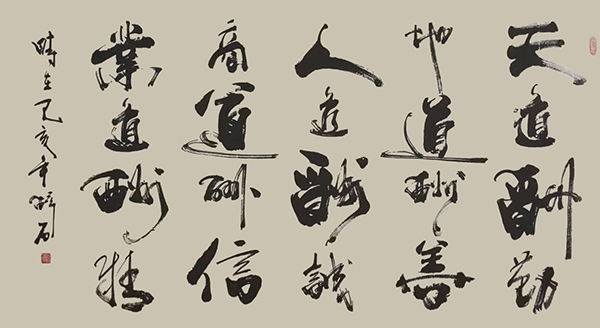 天道酬勤
地道酬善
人道酬誠
商道酬信
業道酬精
時在己亥年